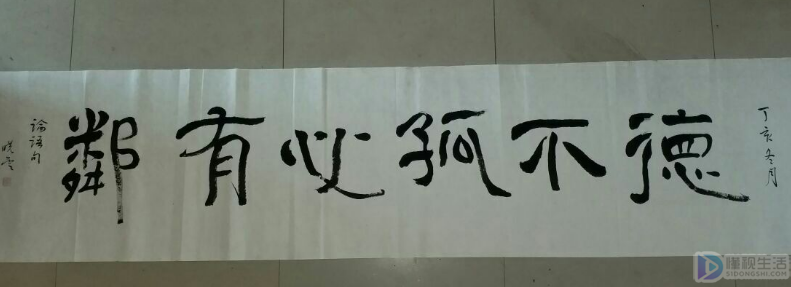 丁亥冬月
德不孤必有鄰
論語句
曉雲
懂视生活
SIDONGSHI.COM